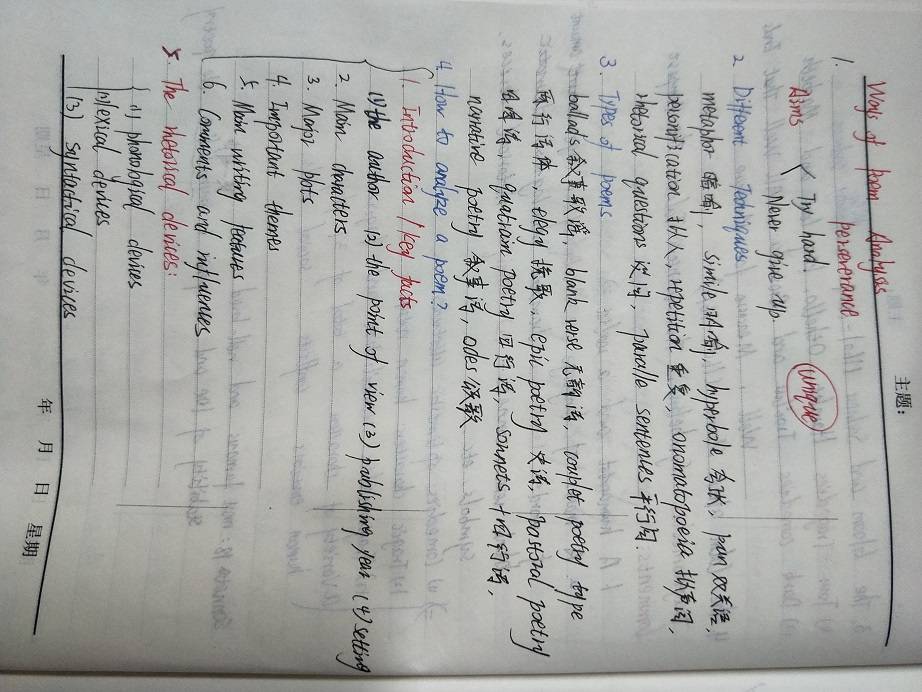 主题:
Ways of Poem Analysis
1. perseverance
Aims < Try hard.
Never give up.
unique
2 Different Techniques
metaphor 暗喻, simile 明喻, hyperbole 夸张, pun 双关语,
personification 拟人, repetition 重复, onomatopoeia 拟声词,
rhetorial questions 设问, paralle sentences 平行句.
3. Types of poems
ballads 叙事歌谣, blank verse 无韵诗, couplet poetry type
两行诗体, elegy 挽歌, epic poetry 史诗, pastoral poetry
田园诗, quatrain poetry 四行诗, sonnets 十四行诗,
narrative poetry 叙事诗, odes 颂歌
4. How to analyze a poem?
1. Introduction / key facts
(1) the author (2) the point of view (3) publishing year (4) setting
2. Main characters
3. Major plots
4. Important themes
5. Main writing features
6. Comments and influences
5. The rhetorical devices:
(1) phonological devices
(2) lexical devices
(3) syntactical devices
年 月 日 星期